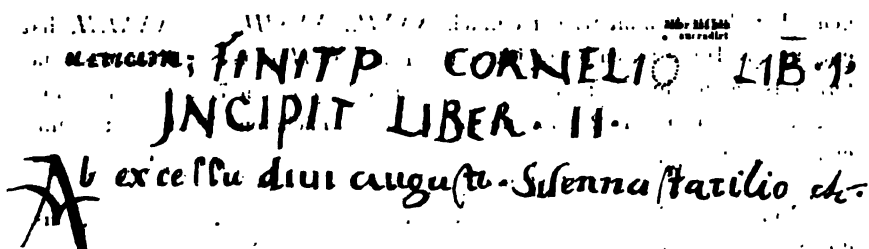 FINIT P CORNELIO LIB. I.
INCIPIT LIBER. II.
Ab excessu diui augusti. Sisenna statilio